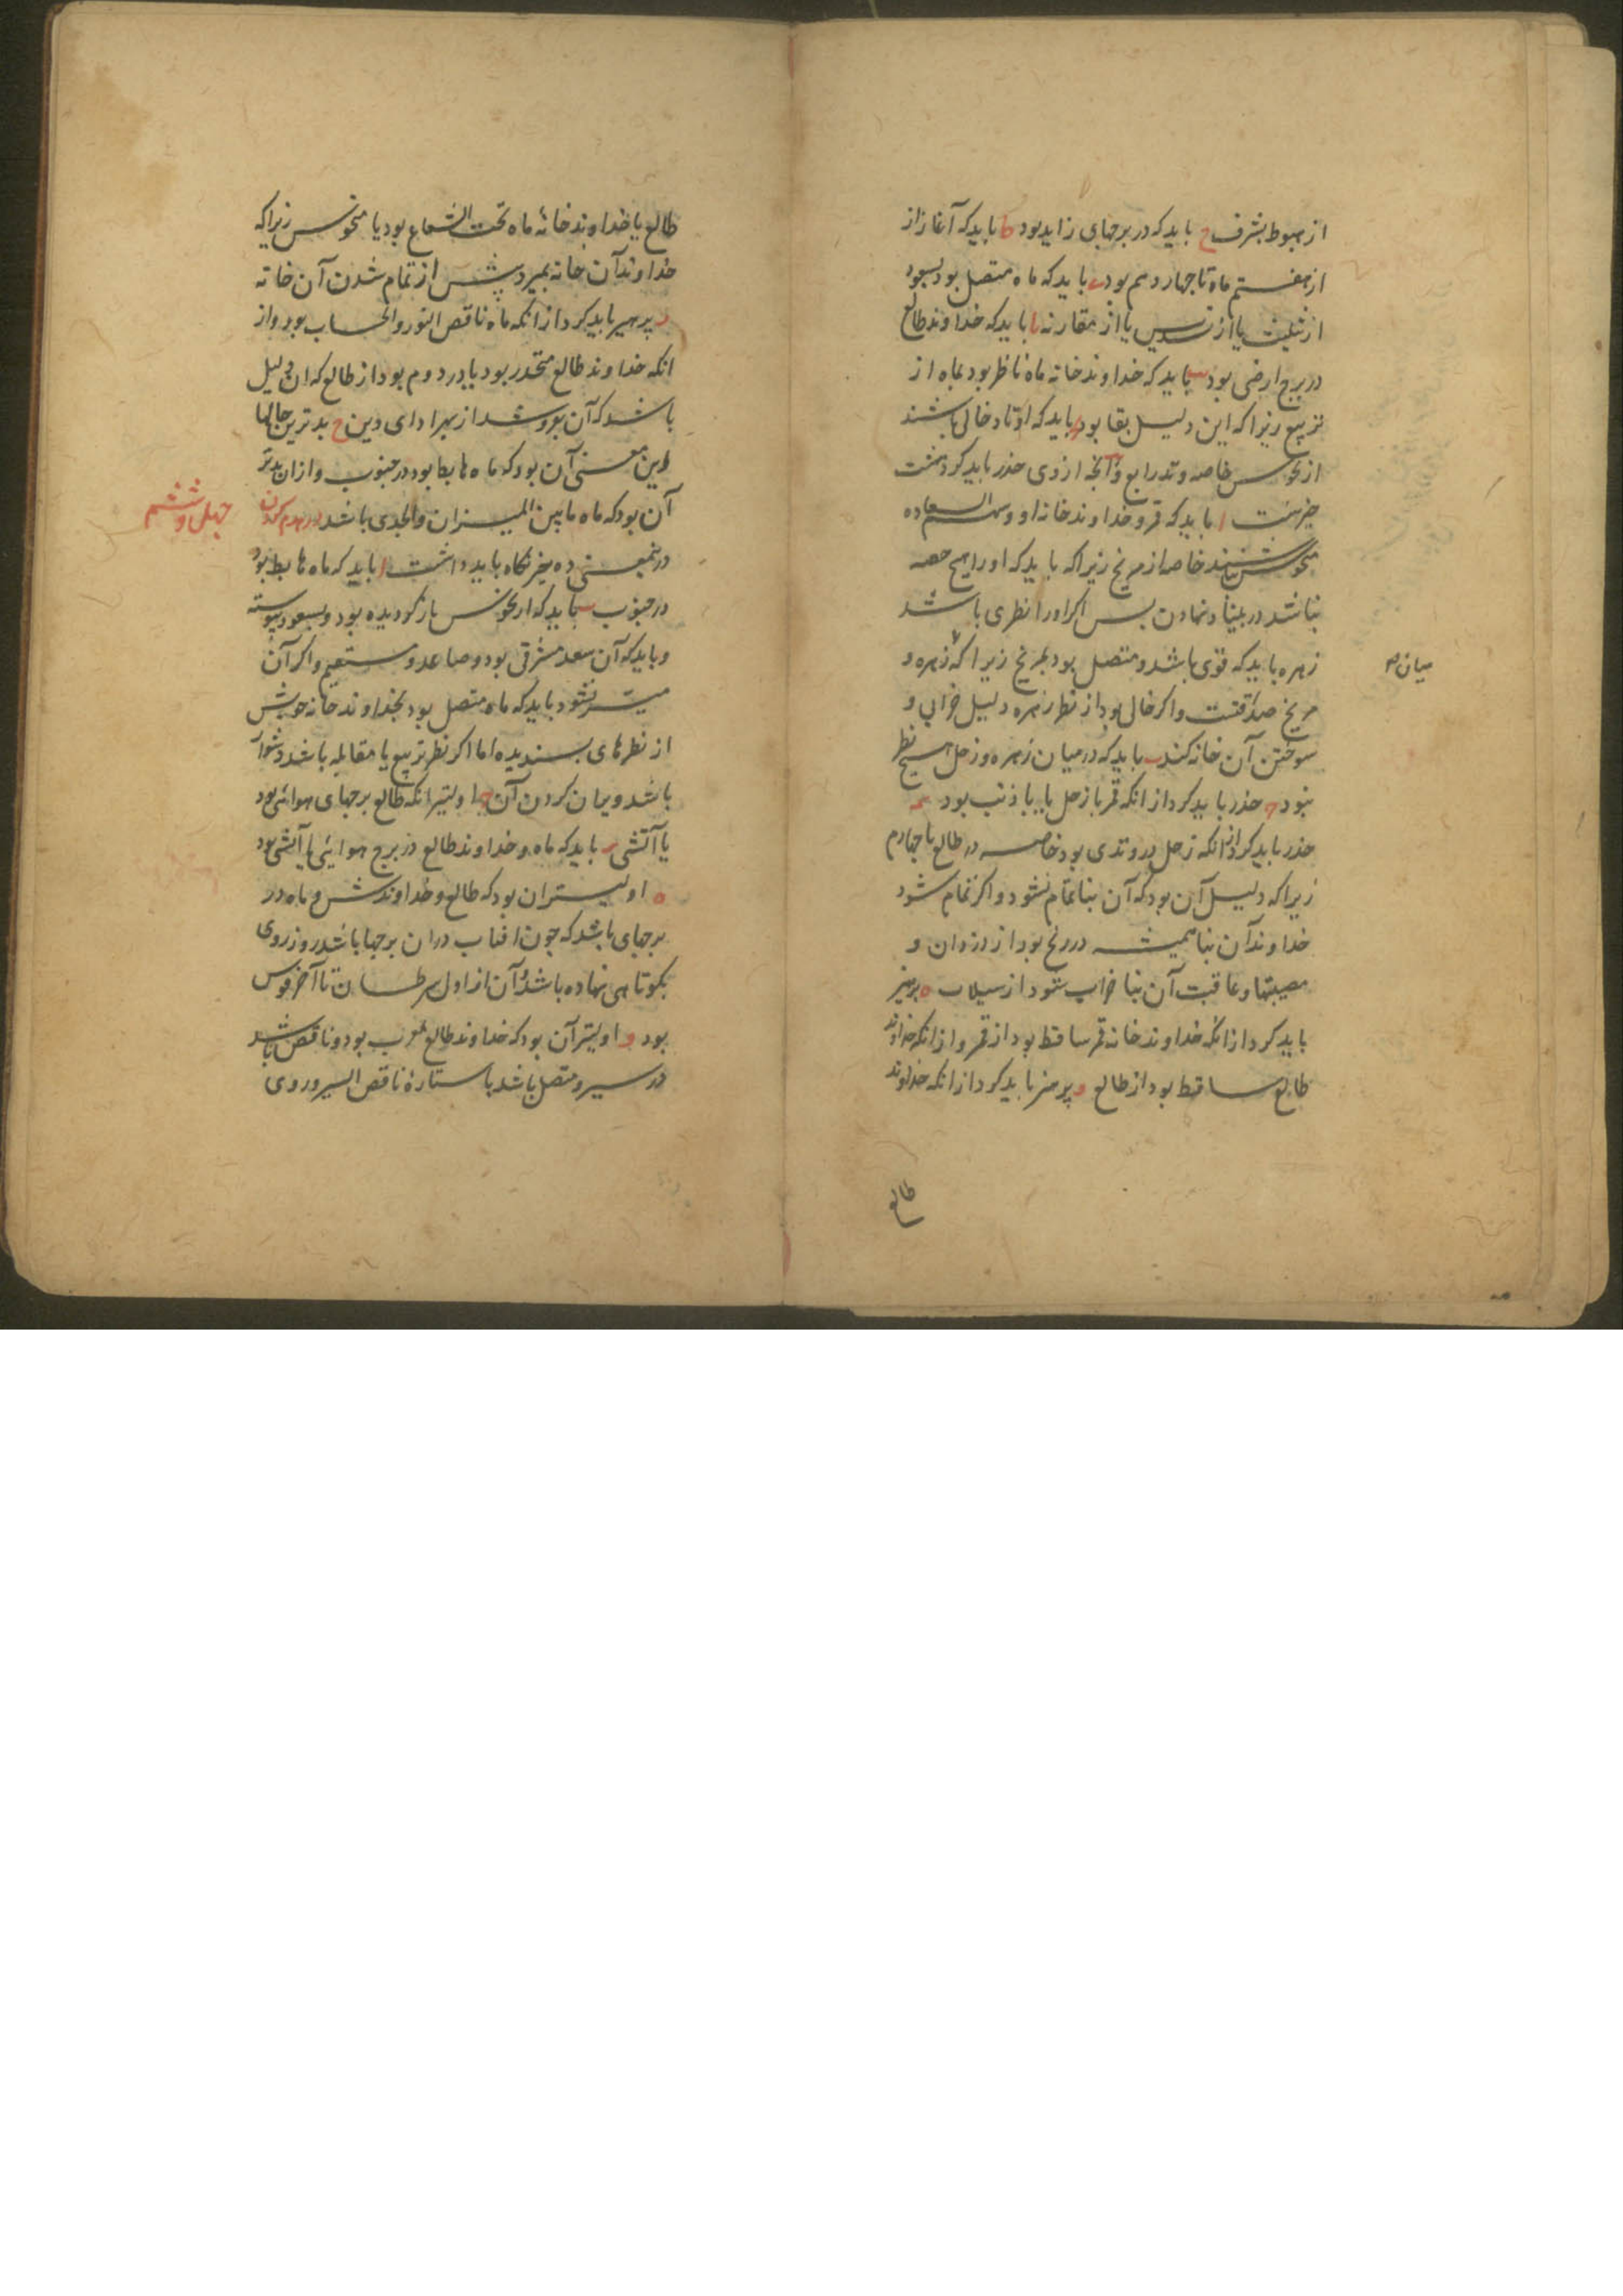 از هبوط بشرف ح باید که در برجهای زاید بود ط باید که آغاز از
از هفتم ماه تا چهاردهم بود ی باید که ماه متصل بود بسعود
از تثلیث یا از تسدیس یا از مقارنه یا باید که خداوند طالع
در برج ارضی بود یب باید که خداوند خانه ماه ناظر بود بماه از
تربیع زیرا که این دلیل بقا بود باید که اوتاد خالی باشند
از نحوس خاصه وتد رابع و آنچه از وی حذر باید کرد هشت
چیزست ا باید که قمر و خداوند خانه او و سهم السعاده
منحوس نباشند خاصه از مریخ زیرا که باید که او را هیچ حصه
نباشد در بنیاد نهادن پس اگر او را نظری باشد
زهره باید که قوی باشد و متصل بود بمریخ زیرا که زهره و
میان ص
مریخ صداقتست و اگر خالی بود از نظر زهره دلیل خرابی و
سوختن آن خانه کند ب باید که در میان زهره و زحل هیچ نظر
نبود ج حذر باید کرد از انکه قمر با زحل یا با ذنب بود د
حذر باید کرد از انکه زحل در وتدی بود خاصه در طالع یا چهارم
زیرا که دلیل آن بود که آن بنا تمام نشود و اگر تمام شود
خداوند آن بنا همیشه در رنج بود از دزدان و
مصیبتها و عاقبت آن بنا خراب شود از سیلاب ه پرهیز
باید کرد از انکه خداوند خانه قمر ساقط بود از قمر و از انکه خداوند
طالع ساقط بود از طالع و پرهیز باید کرد از انکه خداوند
طالع
طالع یا خداوند خانهٔ ماه تحت الشعاع بود یا منحوس زیرا که
خداوند آن خانه بمیرد پیش از تمام شدن آن خانه
ز پرهیز باید کرد از انکه ماه ناقص النور والحساب بود و از
انکه خداوند طالع منحدر بود یا در دوم بود از طالع که ان دلیل
باشد که آن بفروشد از بهر ادای دین ح بدترین حالها
درین معنی آن بود که ماه هابط بود در جنوب و از ان بدتر
آن بود که ماه مابین المیزان والجدی باشد در هدم کردن
چهل و ششم
درینمعنی ده چیز نگاه باید داشت ا باید که ماه هابط بود
در جنوب ب باید که از نحوس بازگردیده بود و بسعود پیوسته
و باید که آن سعد مشرقی بود و صاعد و مستقیم و اگر آن
میسر نشود باید که ماه متصل بود بخداوند خانه خویش
از نظرهای پسندیده اما اگر نظر تربیع یا مقابله باشد دشوار
باشد ویران کردن آن ج اولیتر انکه طالع برجهای هوائی بود
یا آتشی د باید که ماه و خداوند طالع در برج هوایئی یا آتشی بود
ه اولیتر ان بود که طالع و خداوندش و ماه در
برجهای باشد که چون افتاب در ان برجها باشد روز روی
بکوتاهی نهاده باشد و آن از اول سرطان تا آخر قوس
بود و اولیتر آن بود که خداوند طالع مغرب بود و ناقص باشد
در سیر و متصل باشد با ستارهٔ ناقص السیر و روی